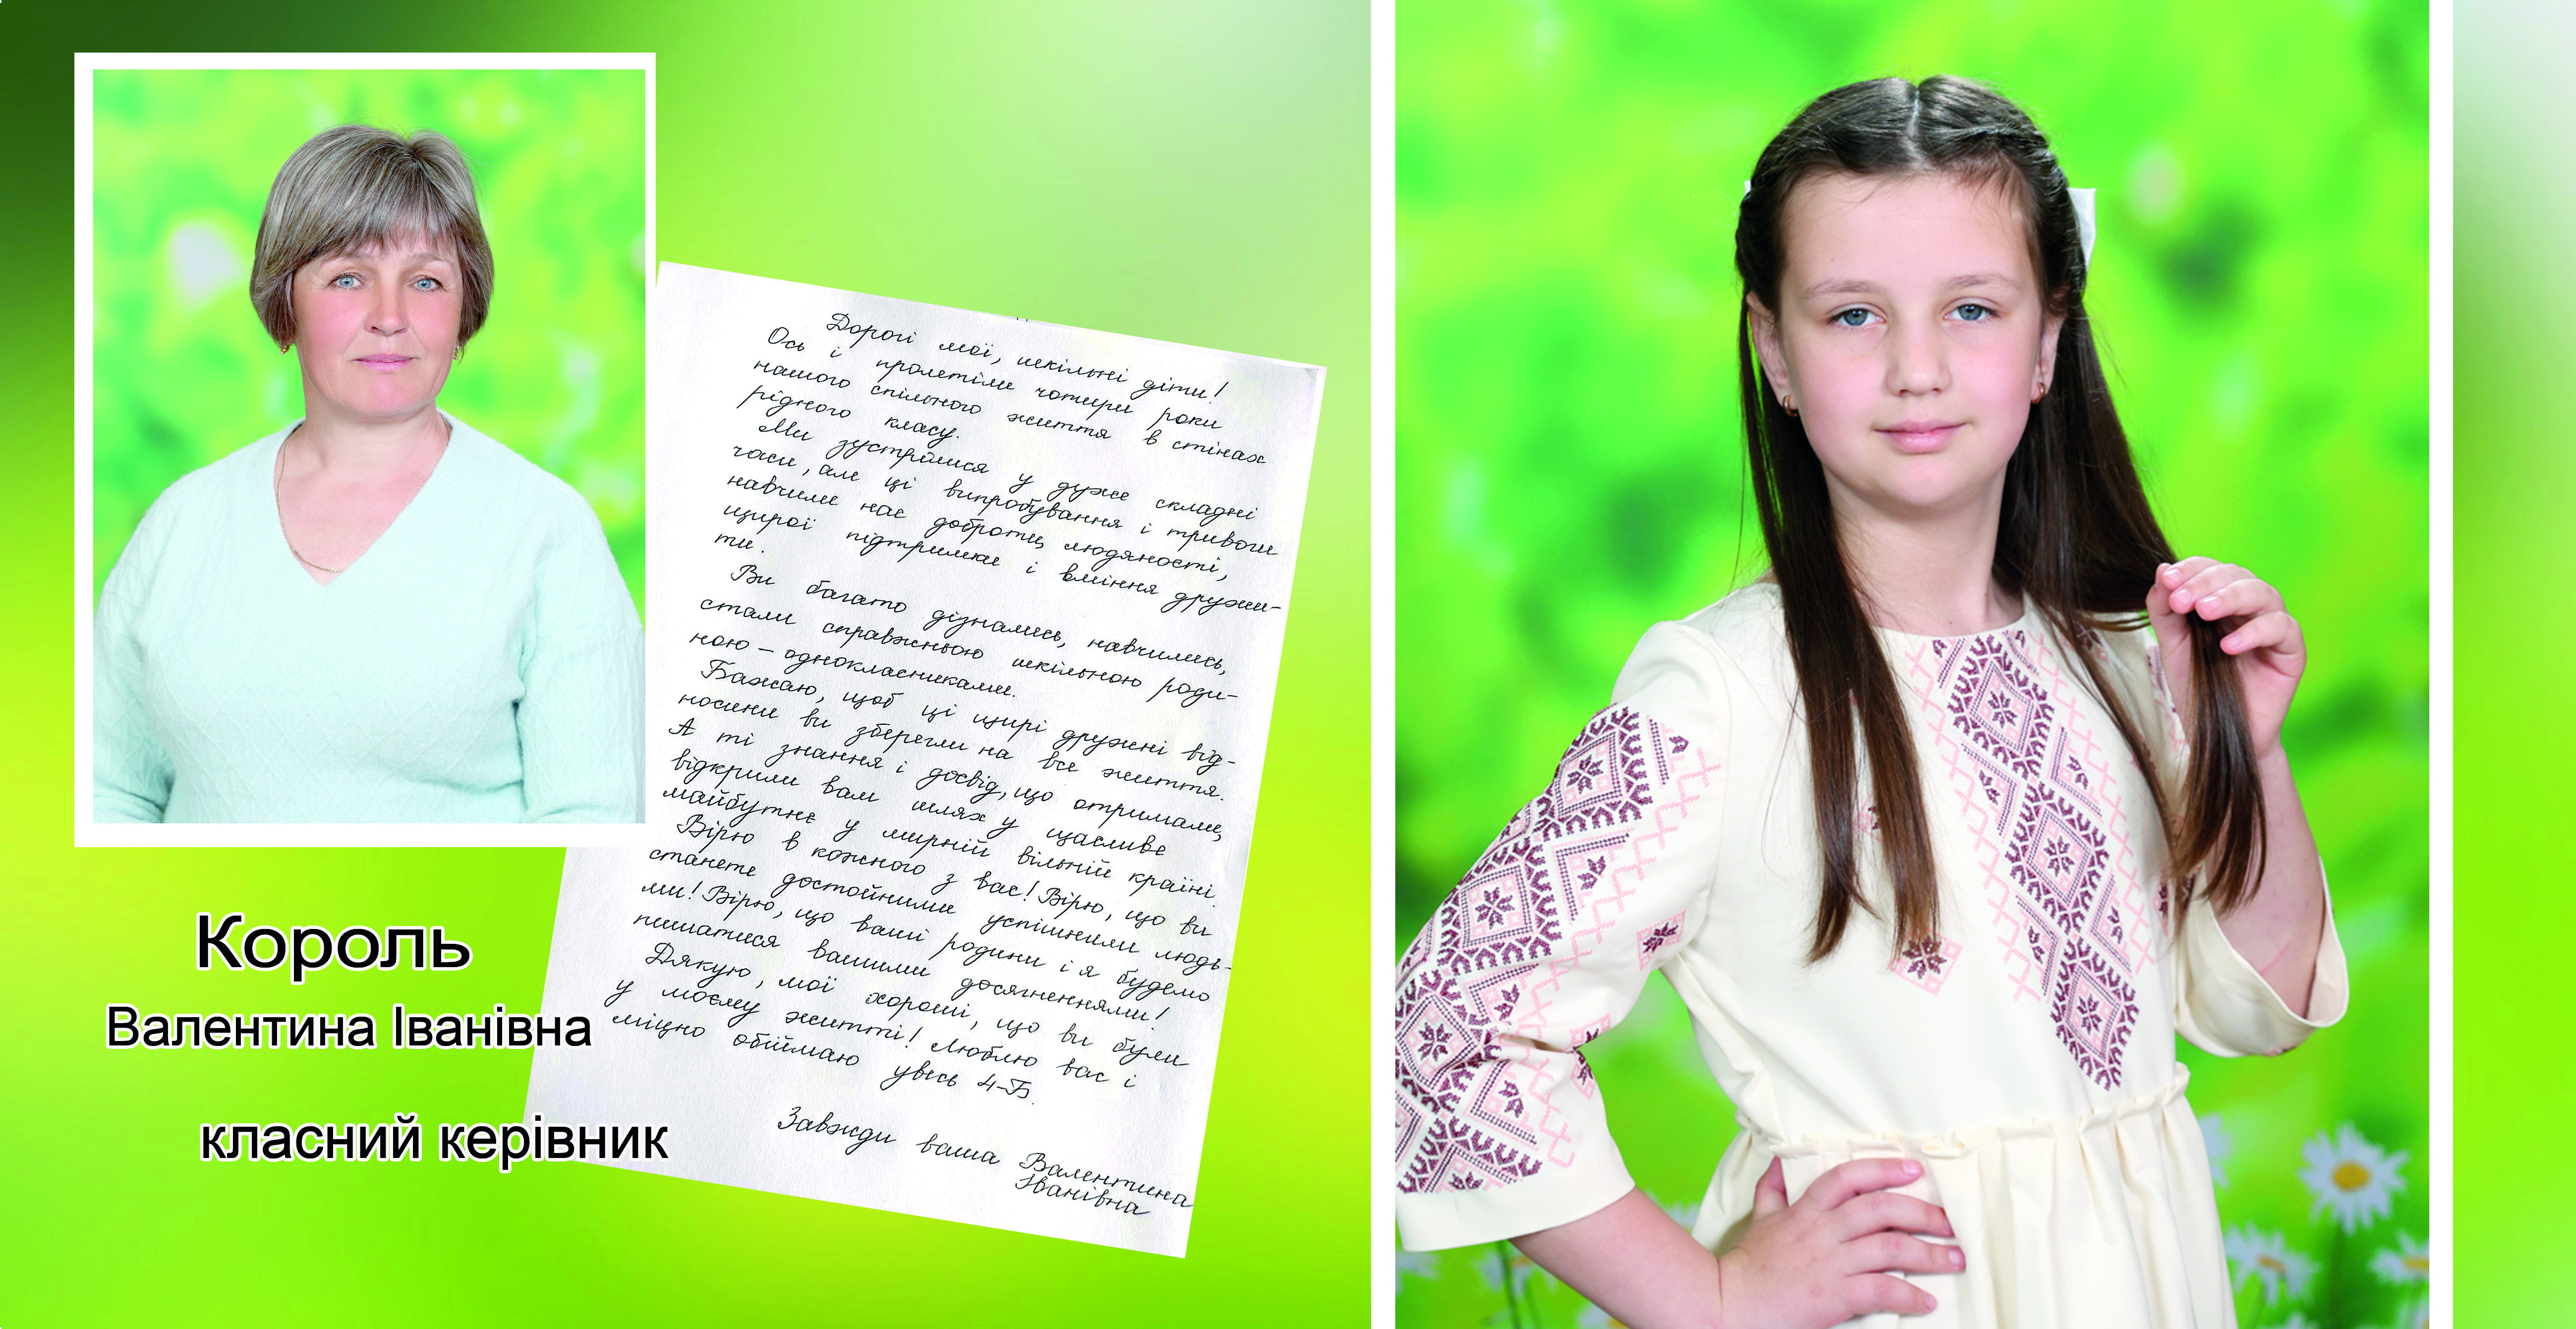 Дорогі мої, шкільні діти!
Ось і пролетіли чотири роки
нашого спільного життя в стінах
рідного класу.
Ми зустрілися у дуже складні
часи, але ці випробування і тривоги
навчили нас доброти, людяності,
щирої підтримки і вміння дружи-
ти.
Ви багато дізнались, навчились,
стали справжньою шкільною роди-
ною – однокласниками.
Бажаю, щоб ці щирі дружні від-
носини ви зберегли на все життя.
А ті знання і досвід, що отримали,
відкрили вам шлях у щасливе
майбутнє у мирній вільній країні.
Вірю в кожного з вас! Вірю, що ви
станете достойними успішними людь-
ми! Вірю, що ваші родини і я будемо
пишатися вашими досягненнями!
Дякую, мої хороші, що ви були
у моєму житті! Люблю вас і
міцно обіймаю увесь 4-Б.
Завжди ваша Валентина
Іванівна
Король
Валентина Іванівна
класний керівник